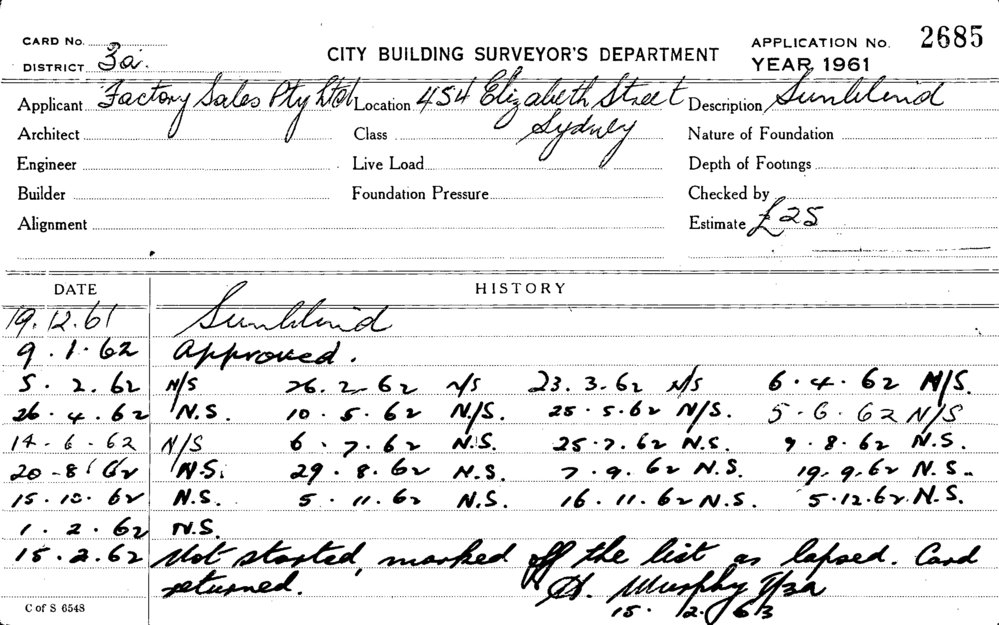 CARD No.
DISTRICT 3a.
CITY BUILDING SURVEYOR'S DEPARTMENT
APPLICATION No. 2685
YEAR 1961
Applicant Factory Sales Pty Ltd Location 454 Elizabeth Street Description Sunblind
Architect Class Sydney Nature of Foundation
Engineer Live Load Depth of Footings
Builder Foundation Pressure Checked by
Alignment Estimate £25
DATE HISTORY
19.12.61 Sunblind
9.1.62 Approved.
5.2.62 N/S 26.2.62 N/S 23.3.62 N/S 6.4.62 N/S.
26.4.62 N.S. 10.5.62 N./S. 25.5.62 N/S. 5.6.62 N/S
14.6.62 N/S 6.7.62 N.S. 25.7.62 N.S. 9.8.62 N.S.
20.8.62 N.S. 29.8.62 N.S. 7.9.62 N.S. 19.9.62 N.S.
15.10.62 N.S. 5.11.62 N.S. 16.11.62 N.S. 5.12.62. N.S.
1.2.62 N.S.
15.2.62 Not started, marked off the list as lapsed. Card
returned. Murphy
15.2.63
C of S 6548